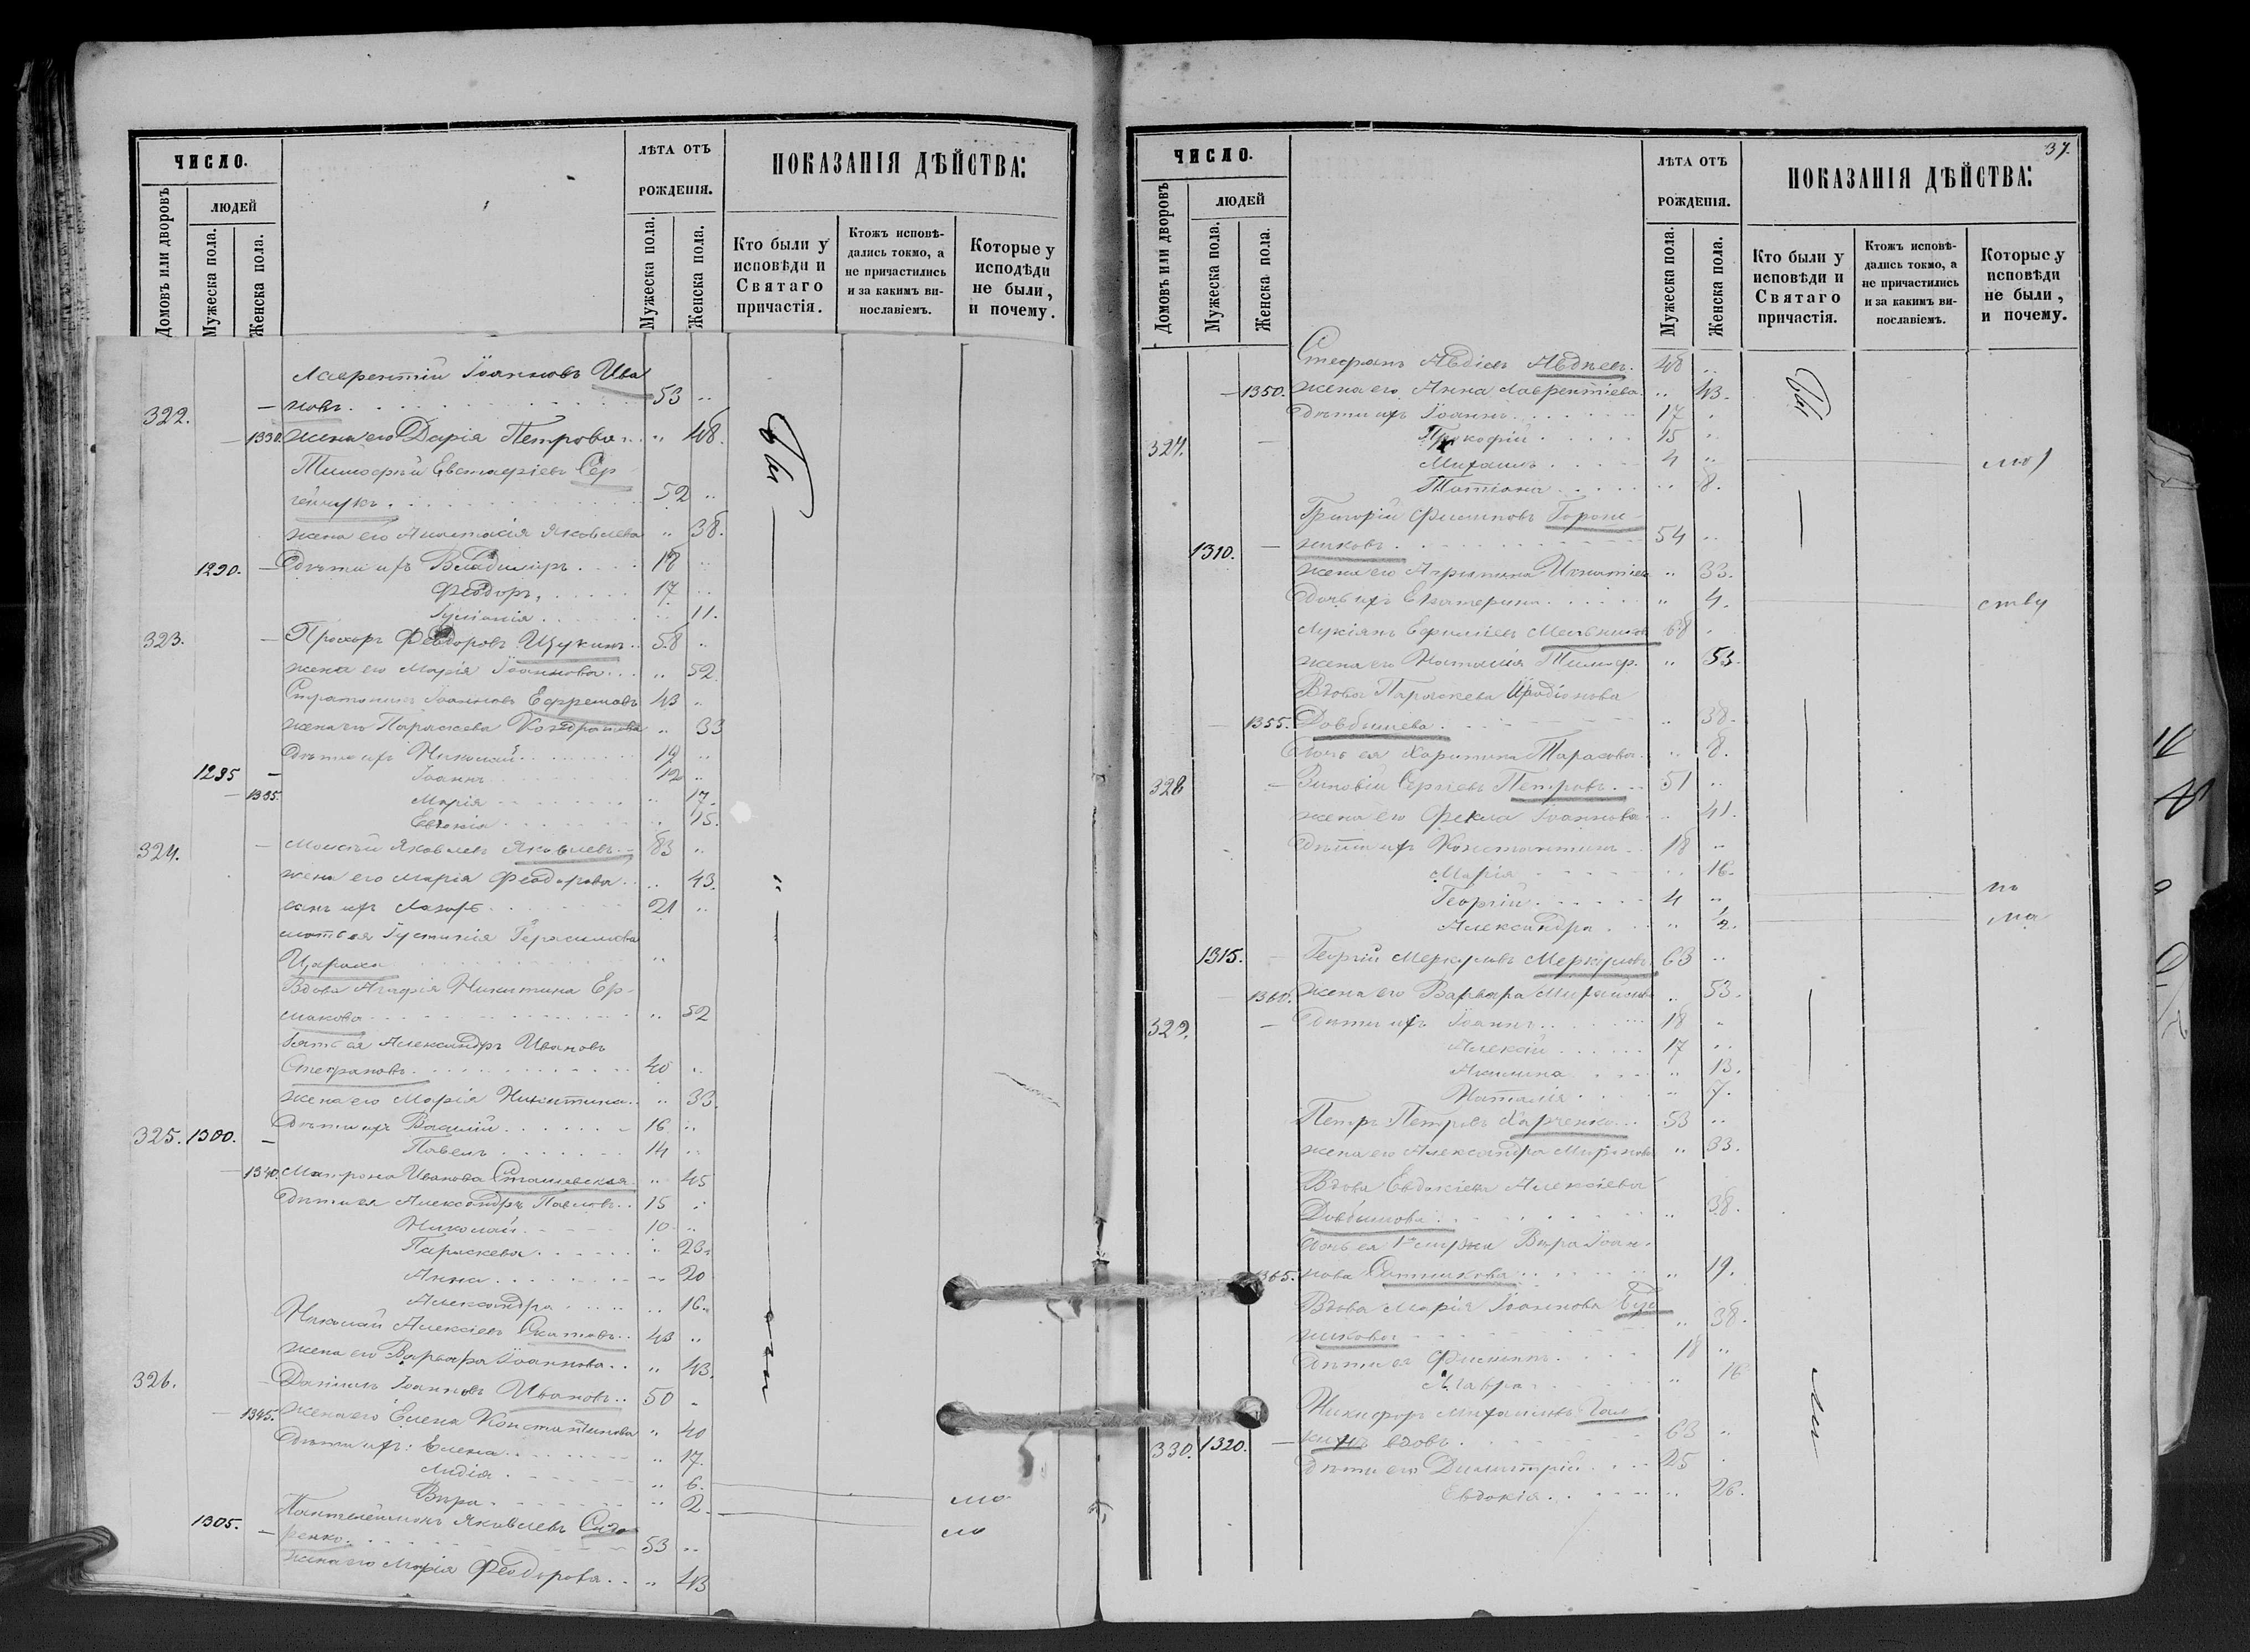 ЧИСЛО.
ЛѢТА ОТЪ РОЖДЕНІЯ.
ПОКАЗАНІЯ ДѢЙСТВА:
Домовъ или дворовъ
ЛЮДЕЙ
Мужеска пола.
Женска пола.
Мужеска пола.
Женска пола.
Кто были у исповѣди и Святаго причастія.
Ктожъ исповѣ-
дались токмо, а
не причастились
и за какимъ ви-
нословіемъ.
Которые у
исподѣди
не были,
и почему.
Лаврентій Іоанновъ Ива
322. новъ 53 "
1330. жена его Дарія Петрова " 48.
Тимофей Евстафіевъ Сер
гейчукъ. 52 "
жена его Анастасія Яковлева " 38.
1290. дѣти ихъ Владиміръ 18 "
Феодоръ 17 "
" 11.
323. Прохоръ Феодоровъ Щукинъ 58 "
жена его Марія Іоаннова " 52.
Стратоникъ Іоанновъ Ефремовъ 43 "
жена его Параскева Кондратова " 33
дѣти ихъ Николай 19 "
1295 Іоаннъ 12 "
1335. Марія " 17.
Евгенія " 15.
324. Моисей Яковлевъ Яковлевъ 83 "
жена его Марія Феодорова " 43.
сынъ ихъ Лазарь 21 "
Іустинія Герасимова
"
Вдова Агафія Никитина Ер-
макова " 52
зять ея Александръ Ивановъ
Стефановъ. 40 "
жена его Марія Никитина " 33.
дѣти ихъ Василій 16 "
325. 1300. Павелъ 14 "
1340. Матрона Иванова " 45
дѣти ея Александръ Павловъ 15 "
Николай 10 "
Параскева " 23
Анна " 20
Александра " 16
Николай Алексіевъ 43 "
жена его Варвара Іоаннова " 43.
326. Даніилъ Іоанновъ Ивановъ 50 "
1345. жена его Елена Константинова " 40
дѣти ихъ: Елена " 17.
Лидія " 6.
Вѣра " 2. мо
1305. Пантелеймонъ Яковлевъ Сидо ло
ренко. 53 "
жена его Марія Феодорова " 43
37.
ЧИСЛО.
ЛѢТА ОТЪ РОЖДЕНІЯ.
ПОКАЗАНІЯ ДѢЙСТВА:
Домовъ или дворовъ
ЛЮДЕЙ
Мужеска пола.
Женска пола.
Мужеска пола.
Женска пола.
Кто были у исповѣди и Святаго причастія.
Ктожъ исповѣ-
дались токмо, а
не причастились
и за какимъ ви-
нословіемъ.
Которые у
исповѣди
не были,
и почему.
Стефанъ Авдіевъ Авдѣевъ. 48 "
1350. жена его Анна Лаврентіева " 43.
дѣти ихъ Іоаннъ 17 "
327. Прокофій 15 "
Михаилъ 4 "
Татіана " 8.
Григорій Филиповъ
1310. 54 "
жена его Агрипина Игнатіева " 33.
дочь ихъ Екатерина " 4. ству
Лукіанъ Ефиміевъ Мельниковъ 68 "
жена его Наталія Тимоф. " 53.
Вдова Параскева Иродіонова
1355. Довбышева " 38.
дочь ея Харитина Тарасова " 8.
328 Зиновій Сергіевъ Петровъ 51 "
жена его Фекла Іоаннова " 41.
дѣти ихъ Константинъ 18 "
Марія " 16.
Георгій 4 " по
Александра " 1/2. ма
1315. Георгій Меркуловъ Меркуловъ 63 "
1360. жена его Варвара " 53.
329. дѣти ихъ Іоаннъ 18 "
Алексій 17 "
Акилина " 13.
Наталія " 7.
Петръ Петровъ Харченко 53 "
жена его Александра " 33.
Вдова Евдокія Алексіева
Довбышова " 38.
дочь ея Вѣра Іоан-
1365. нова " 19.
Вдова Марія Іоаннова
" 38.
дѣти ея Филипъ 18 "
Мавра " 16
Никифоръ Михаиловъ Гал
330. 1320. кинъ вдовъ. 63 "
дѣти его Димитрій 25 "
Евдокія " 26.